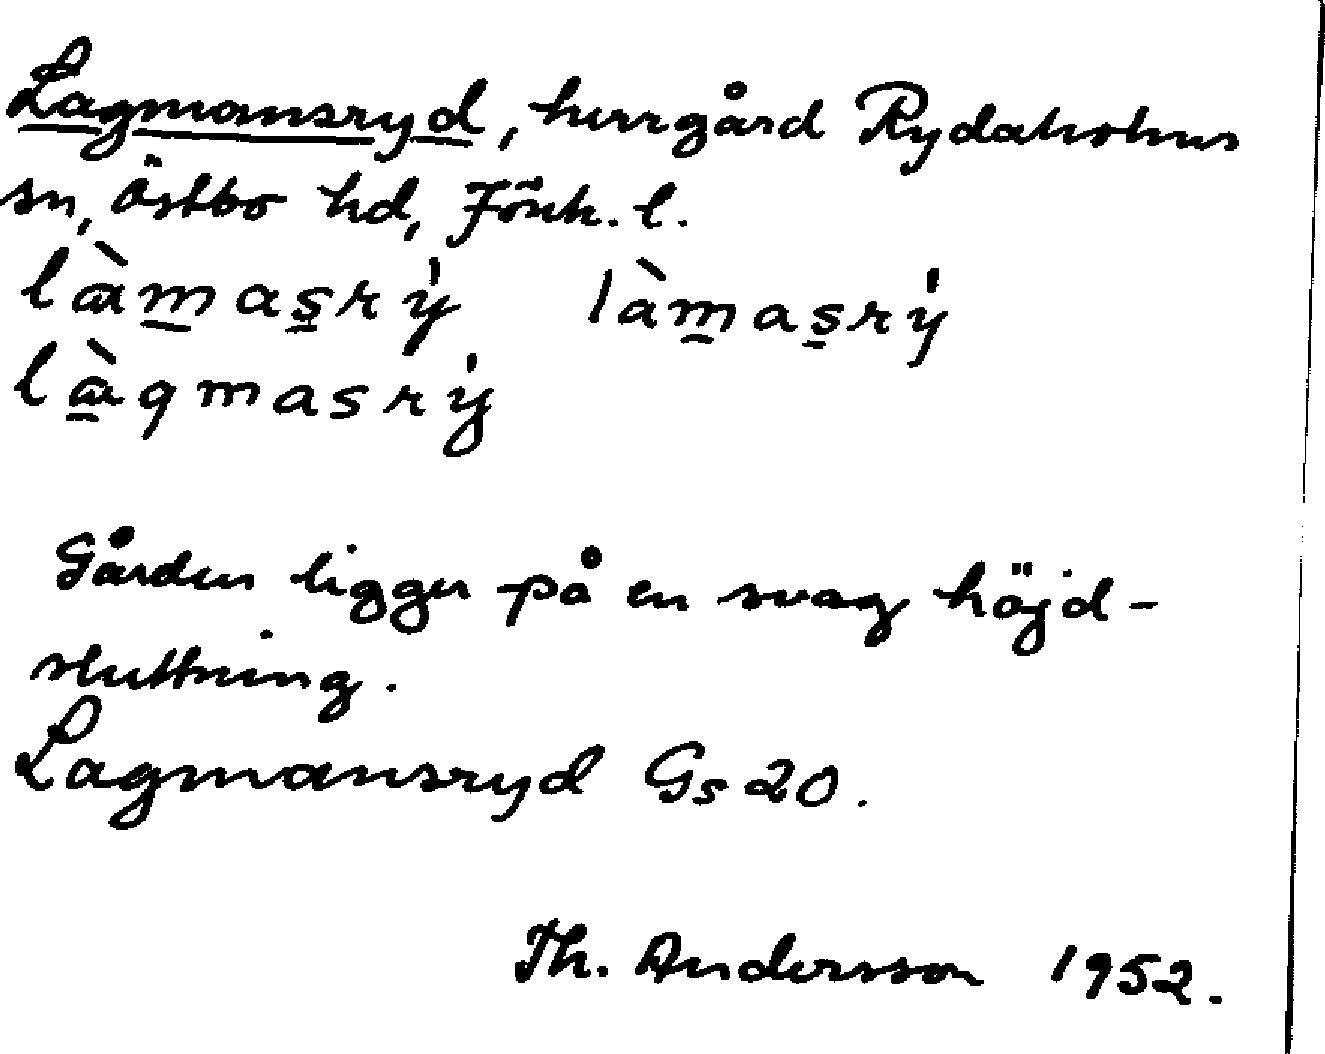 Lagmansryd, herrgård Rydaholms
sn, Östbo hd, Jönk. l.
làmasrý làmasrý
làgmasrý
Gården ligger på en svag höjd-
sluttning.
Lagmansryd Gs 20.
Th. Andersson 1952.